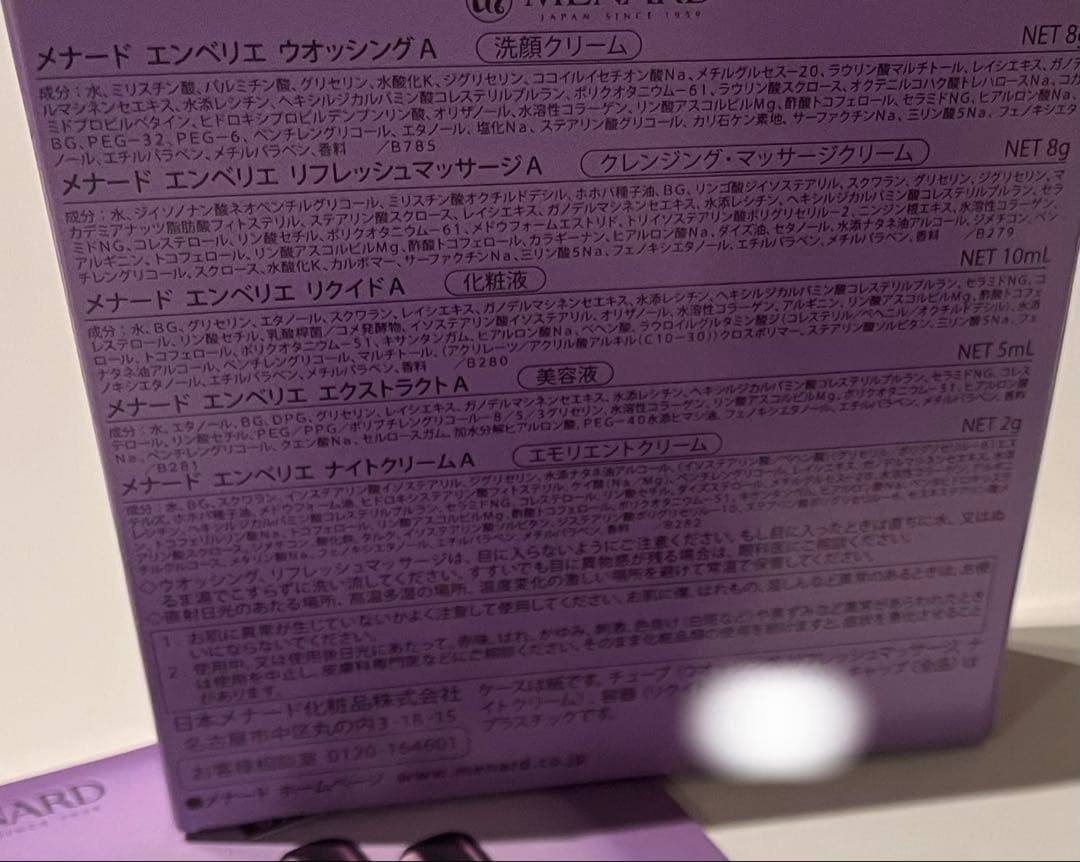 MENARD
JAPAN SINCE 1959
メナード エンベリエ ウオッシングA 洗顔クリーム NET 8g
成分:水、ミリスチン酸、パルミチン酸、グリセリン、水酸化K、ジグリセリン、ココイルイセチオン酸Na、メチルグルセス-20、ラウリン酸マルチトール、レイシエキス、ガノデ
ルマシネンセエキス、水添レシチン、ヘキシルジカルバミン酸コレステリルプルラン、ポリクオタニウム-61、ラウリン酸スクロース、オクテニルコハク酸トレハロースNa、コカ
ミドプロピルベタイン、ヒドロキシプロピルデンプンリン酸、オリザノール、水溶性コラーゲン、リン酸アスコルビルMg、酢酸トコフェロール、セラミドNG、ヒアルロン酸Na、
BG、PEG-32、PEG-6、ペンチレングリコール、エタノール、塩化Na、ステアリン酸グリコール、カリ石ケン素地、サーファクチンNa、ミリン酸5Na、フェノキシエタ
ノール、エチルパラベン、メチルパラベン、香料 /B785
メナード エンベリエ リフレッシュマッサージA クレンジング・マッサージクリーム NET 8g
成分:水、ジイソノナン酸ネオペンチルグリコール、ミリスチン酸オクチルドデシル、ホホバ種子油、BG、リンゴ酸ジイソステアリル、スクワラン、グリセリン、ジグリセリン、マ
カデミアナッツ脂肪酸フィトステリル、ステアリン酸スクロース、レイシエキス、ガノデルマシネンセエキス、水添レシチン、ヘキシルジカルバミン酸コレステリルプルラン、セラ
ミドNG、コレステロール、リン酸セチル、ポリクオタニウム-61、メドウフォームエストリド、トリイソステアリン酸ポリグリセリル-2、ニンジン根エキス、水溶性コラーゲン、
アルギニン、トコフェロール、リン酸アスコルビルMg、酢酸トコフェロール、カラギーナン、ヒアルロン酸Na、ダイズ油、セタノール、水添ナタネ油アルコール、ジメチコン、ペン
チレングリコール、スクロース、水酸化K、カルボマー、サーファクチンNa、ミリン酸5Na、フェノキシエタノール、エチルパラベン、メチルパラベン、香料 /B279
メナード エンベリエ リクイドA 化粧液 NET 10mL
成分:水、BG、グリセリン、エタノール、スクワラン、レイシエキス、ガノデルマシネンセエキス、水添レシチン、ヘキシルジカルバミン酸コレステリルプルラン、セラミドNG、コ
レステロール、リン酸セチル、乳酸桿菌/コメ発酵物、イソステアリン酸イソステアリル、オリザノール、水溶性コラーゲン、アルギニン、リン酸アスコルビルMg、酢酸トコフェ
ロール、トコフェロール、ポリクオタニウム-51、キサンタンガム、ヒアルロン酸Na、ベヘン酸、ラウロイルグルタミン酸ジ(コレステリル/ベヘニル/オクチルドデシル)、水添
ナタネ油アルコール、ペンチレングリコール、マルチトール、(アクリレーツ/アクリル酸アルキル(C10-30))クロスポリマー、ステアリン酸ソルビタン、ミリン酸5Na、フェ
ノキシエタノール、エチルパラベン、メチルパラベン、香料 /B280
メナード エンベリエ エクストラクトA 美容液 NET 5mL
成分:水、エタノール、BG、DPG、グリセリン、レイシエキス、ガノデルマシネンセエキス、水添レシチン、ヘキシルジカルバミン酸コレステリルプルラン、セラミドNG、コレス
テロール、リン酸セチル、PEG/PPG/ポリブチレングリコール-8/5/3グリセリン、水溶性コラーゲン、リン酸アスコルビルMg、ポリクオタニウム-51、ヒアルロン酸
Na、ペンチレングリコール、クエン酸Na、セルロースガム、加水分解ヒアルロン酸、PEG-40水添ヒマシ油、フェノキシエタノール、エチルパラベン、メチルパラベン、香料
/B281
メナード エンベリエ ナイトクリームA エモリエントクリーム NET 2g
成分:水、BG、スクワラン、イソステアリン酸イソステアリル、ジグリセリン、水添ナタネ油アルコール、
/B282
◇ウオッシング、リフレッシュマッサージは、目に入らないようにご注意ください。もし目に入ったときは直ちに水、又はぬ
るま湯でこすらずに洗い流してください。すすいでも目に異物感が残る場合は、眼科医にご相談ください。
◇直射日光のあたる場所、高温多湿の場所、温度変化の激しい場所を避けて常温で保管してください。
1. お肌に異常が生じていないかよく注意して使用してください。お肌に傷、はれもの、湿しんなど異常のあるときは、お使
いにならないでください。
2. 使用中、又は使用後日光にあたって、赤味、はれ、かゆみ、刺激、色抜け(白斑など)や黒ずみなど異常があらわれたとき
は使用を中止し、皮膚科専門医などにご相談ください。そのまま化粧品類の使用を続けますと、症状を悪化させること
があります。
日本メナード化粧品株式会社
名古屋市中区丸の内3-18-15
お客様相談室 0120-164601
●メナード ホームページ www.menard.co.jp
ケースは紙です。チューブ(ウオ
イトクリーム)、容器(リクイド
プラスチックです。
キャップ(全品)は
MENARD